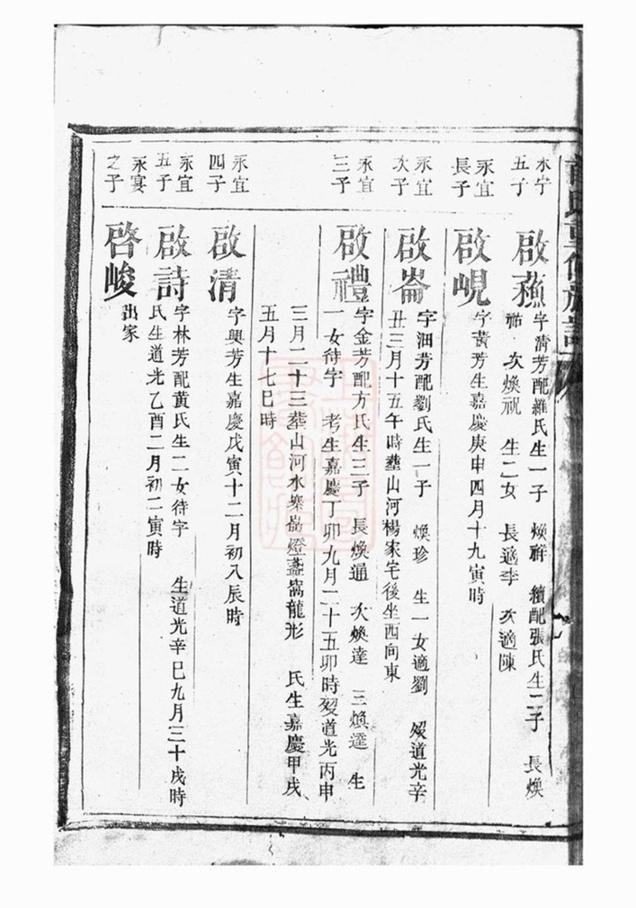 永宁
五子
啟蕪
字清芳配羅氏生一子 煥祥 續配張氏生二子 長煥
祐 次煥祝 生二女 長適李 次適陳
永宜
長子
啟峴
字黃芳生嘉慶庚申四月十九寅時
永宜
次子
啟崙
字泗芳配劉氏生一子 煥珍 生一女適劉 歿道光辛
丑三月十五午時塟山河楊家宅後坐西向東
永宜
三子
啟禮
字金芳配方氏生三子 長煥通 次煥達 三煥 生
一女待字 考生嘉慶丁卯九月二十五卯時歿道光丙申
三月二十三塟山河水寨崙燈盞窩龍形 氏生嘉慶甲戌
五月十七巳時
永宜
四子
啟清
字興芳生嘉慶戊寅十二月初八辰時
永宜
五子
啟詩
字林芳配黃氏生二女待字 生道光辛巳九月三十戌時
氏生道光乙酉二月初二寅時
永宴
之子
啓峻
出家